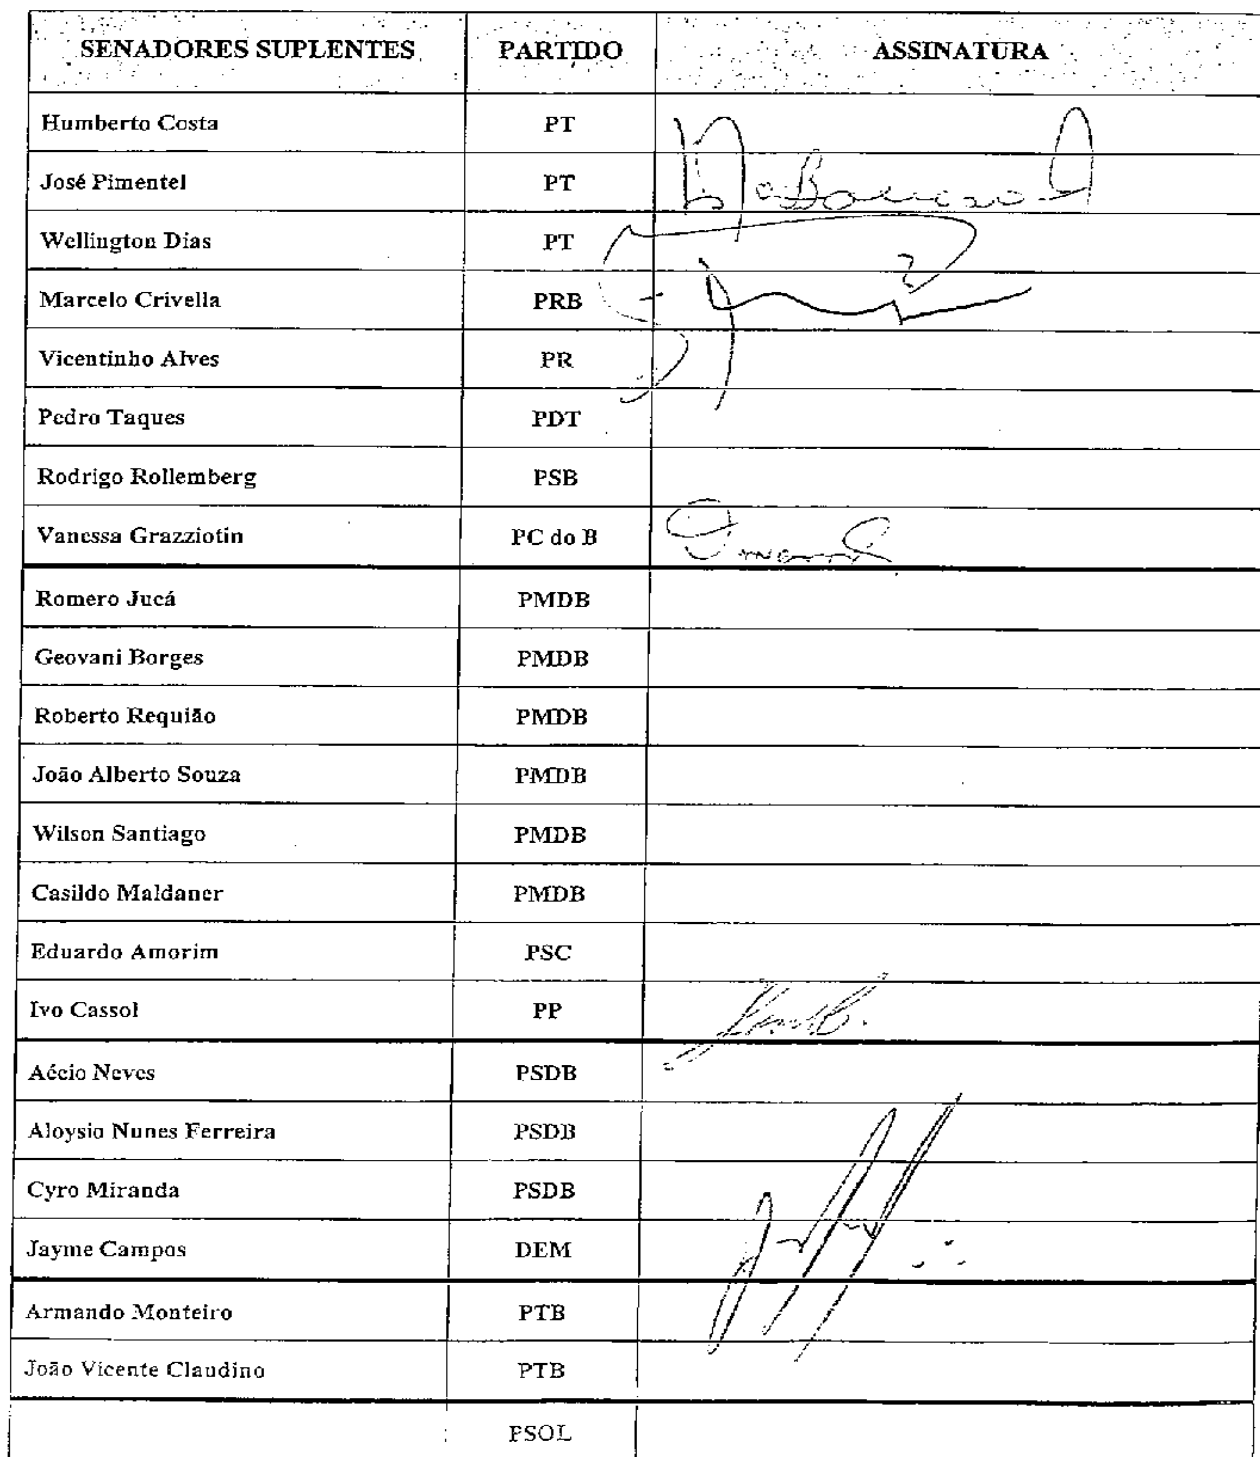 SENADORES SUPLENTES PARTIDO ASSINATURA
Humberto Costa PT
José Pimentel PT
Wellington Dias PT
Marcelo Crivella PRB
Vicentinho Alves PR
Pedro Taques PDT
Rodrigo Rollemberg PSB
Vanessa Grazziotin PC do B
Romero Jucá PMDB
Geovani Borges PMDB
Roberto Requião PMDB
João Alberto Souza PMDB
Wilson Santiago PMDB
Casildo Maldaner PMDB
Eduardo Amorim PSC
Ivo Cassol PP
Aécio Neves PSDB
Aloysio Nunes Ferreira PSDB
Cyro Miranda PSDB
Jayme Campos DEM
Armando Monteiro PTB
João Vicente Claudino PTB
PSOL